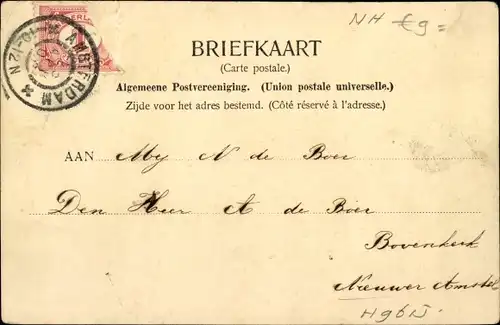 NH €9=
AMSTERDAM
10-12N
BRIEFKAART
(Carte postale.)
Algemeene Postvereeniging. (Union postale universelle.)
Zijde voor het adres bestemd. (Côté réservé à l'adresse.)
AAN Mej N de Boer
Den Heer A de Boer
Bovenkerk
Nieuwer Amstel